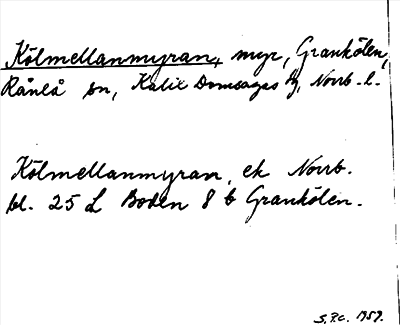 Kölmellanmyran, myr, Grankölen,
Råneå sn, Kalix Domsagas tg, Norrb. l.
Kölmellanmyran, ek Norrb.
bl. 25 L Boden 8 b Grankölen.
S.P.C. 1959.